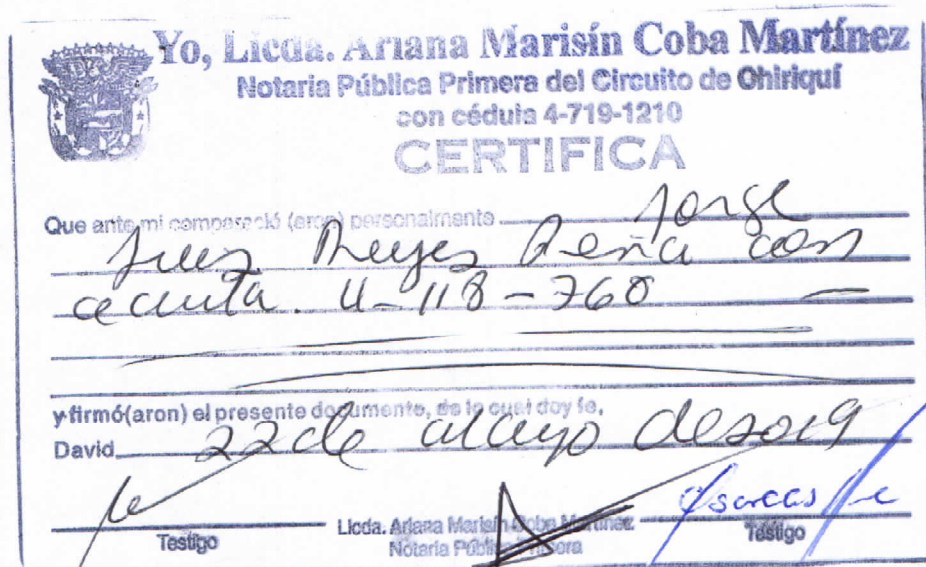 Yo, Licda. Ariana Marisín Coba Martínez
Notaria Pública Primera del Circuito de Chiriquí
con cédula 4-719-1210
CERTIFICA
Que ante mi compareció (eron) personalmente Jorge
Luis Reyes Peña con
cedula. 4-118-760
y firmó(aron) el presente documento, de lo cual doy fe,
David 22 de Mayo de 2019
Testigo
Licda. Ariana Marisín Coba Martínez
Notaria Pública Primera
Testigo